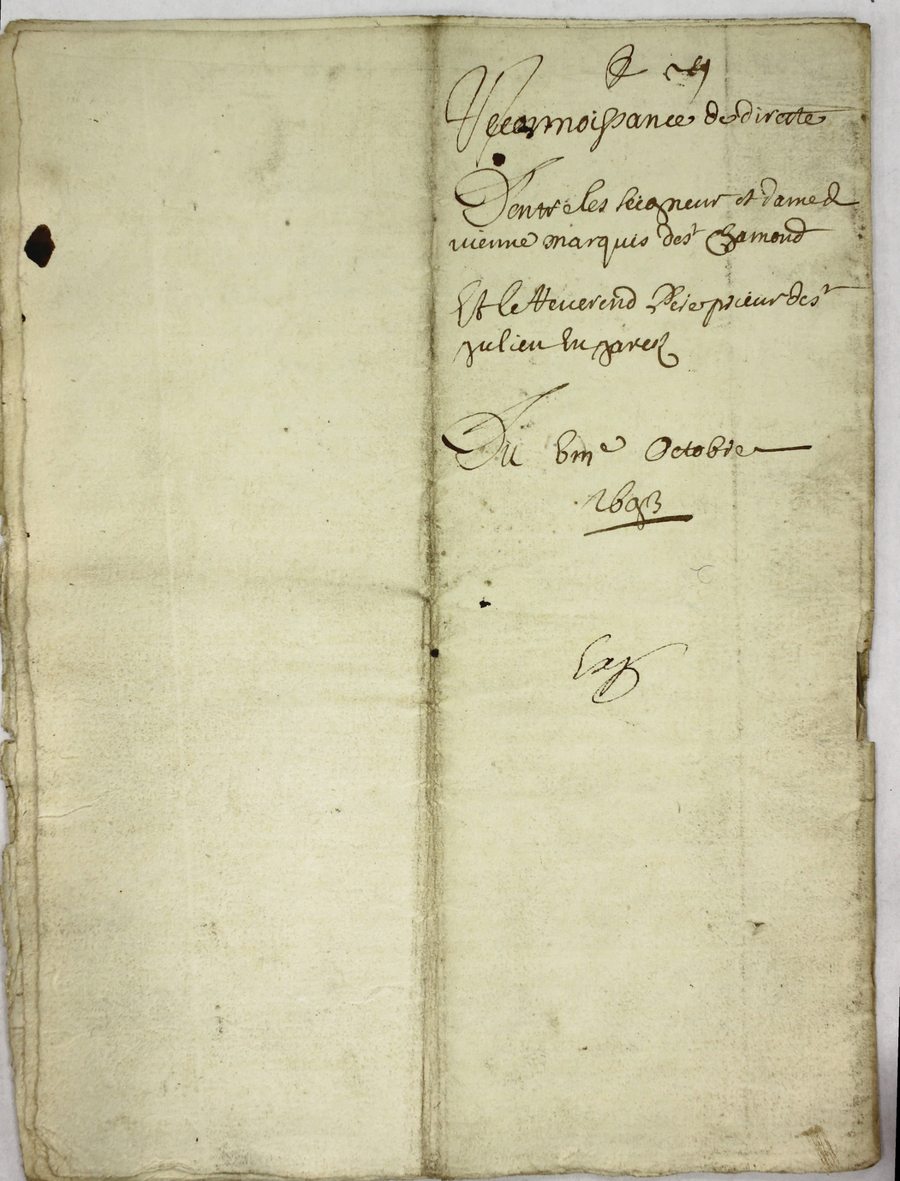 Reconnoissance de directe
Dentre les seigneur et dame de
vienne marquis de st chamond
Et le Reverend Pere prieur de st
Julien En Jarez
Du vme Octobre
1693